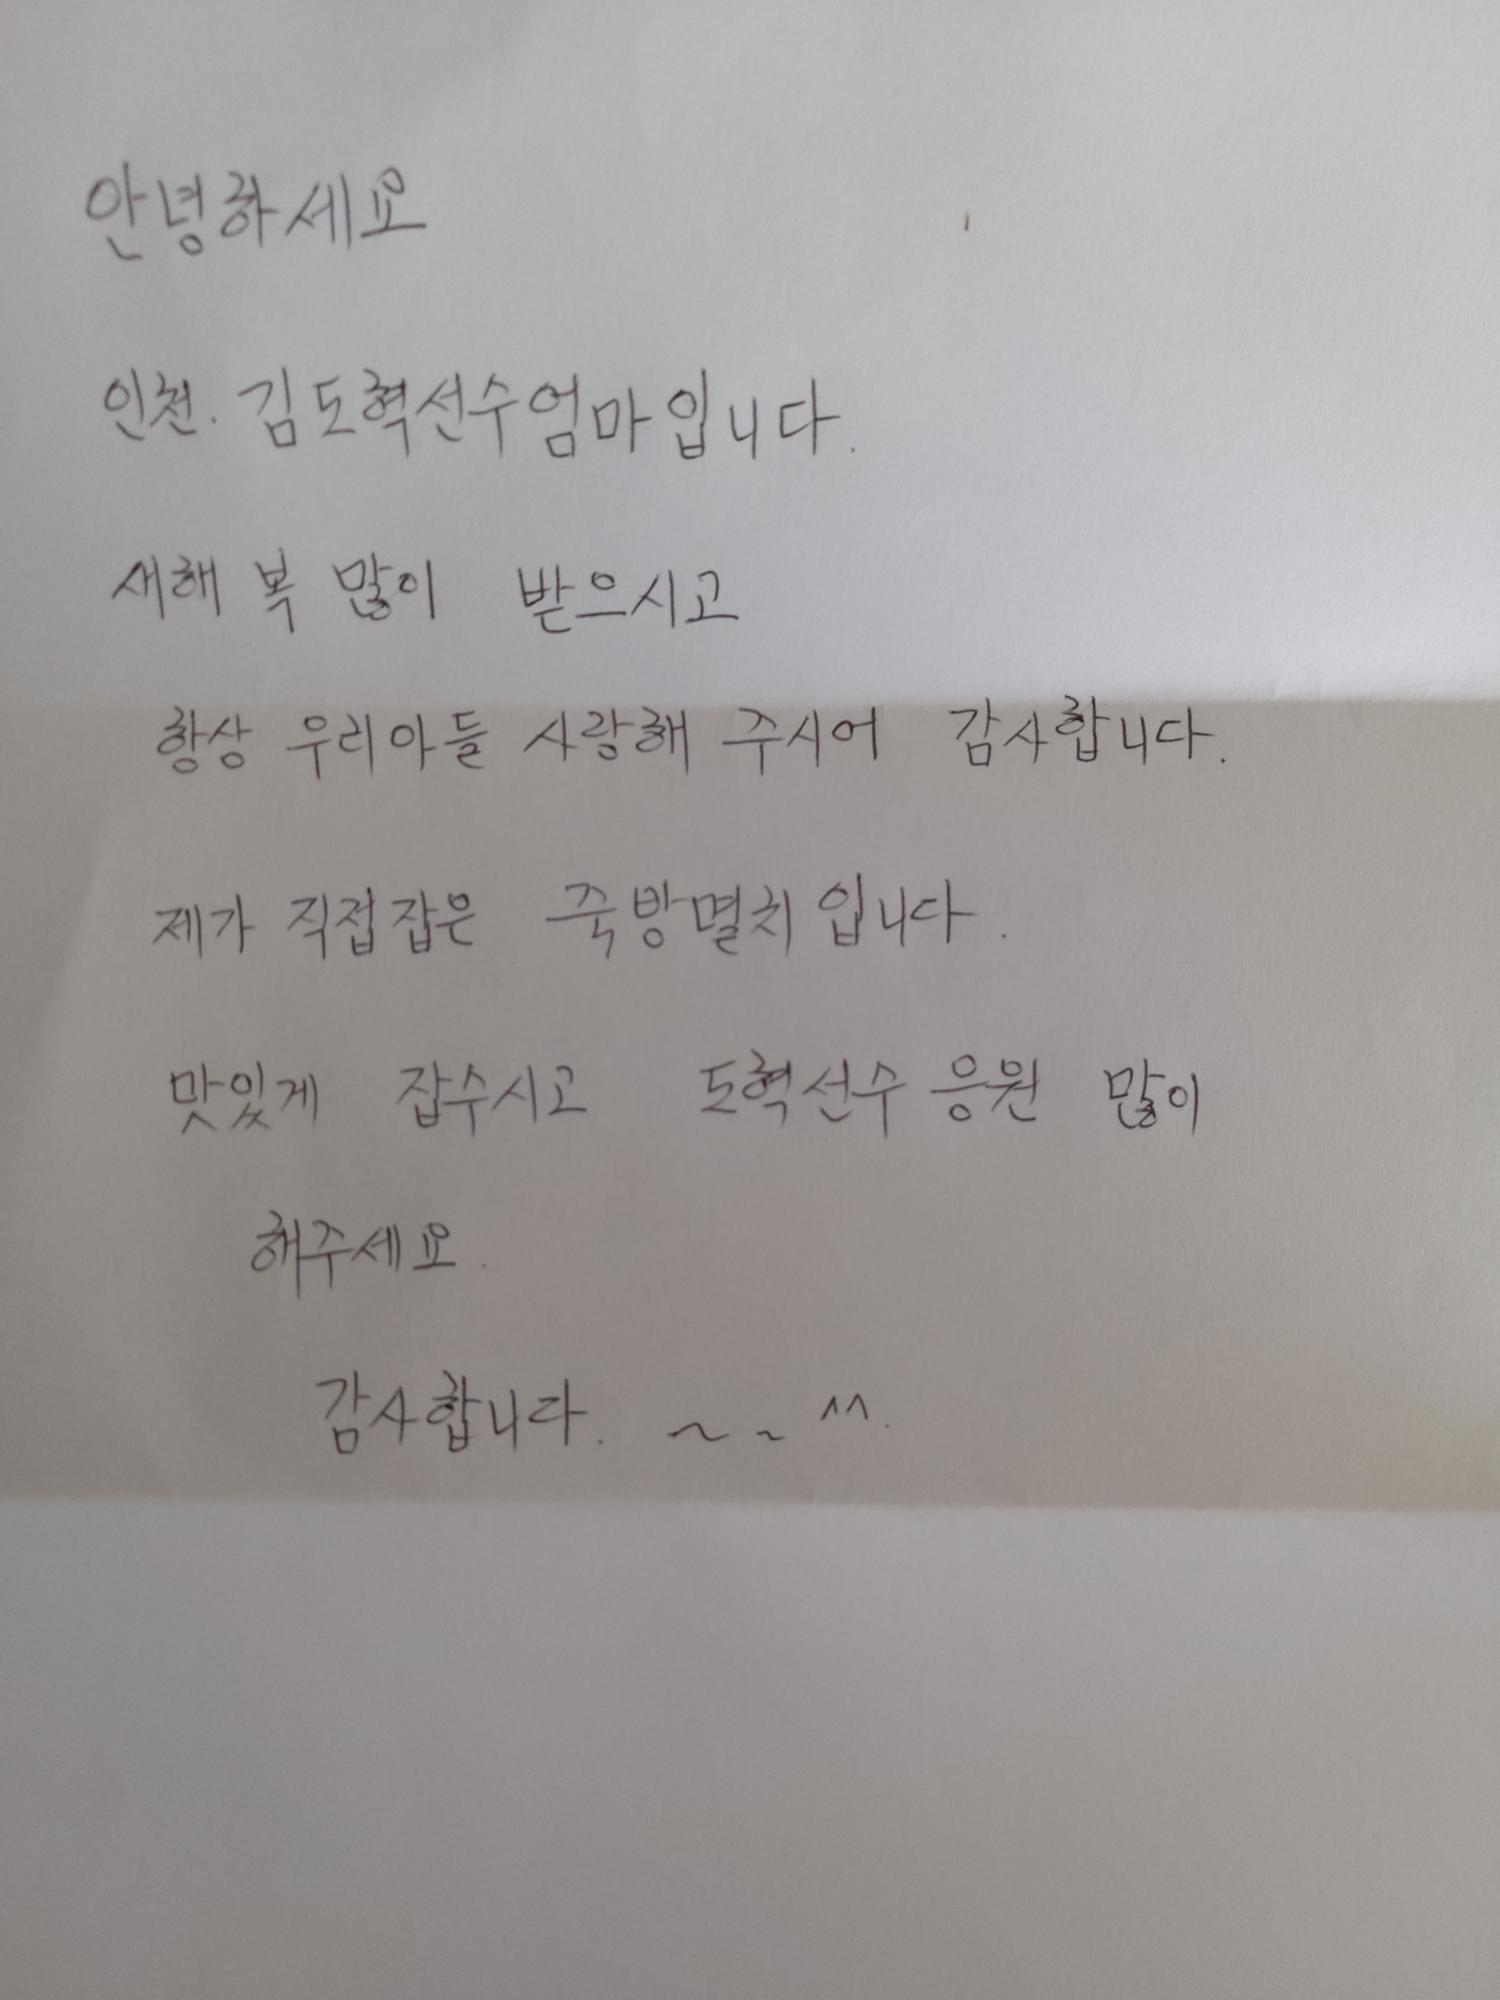 안녕하세요
인천. 김도혁선수엄마입니다.
새해 복 많이 받으시고
항상 우리아들 사랑해 주시어 감사합니다.
제가 직접잡은 죽방멸치입니다.
맛있게 잡수시고 도혁선수 응원 많이
해주세요.
감사합니다. ~ ~ ^^.